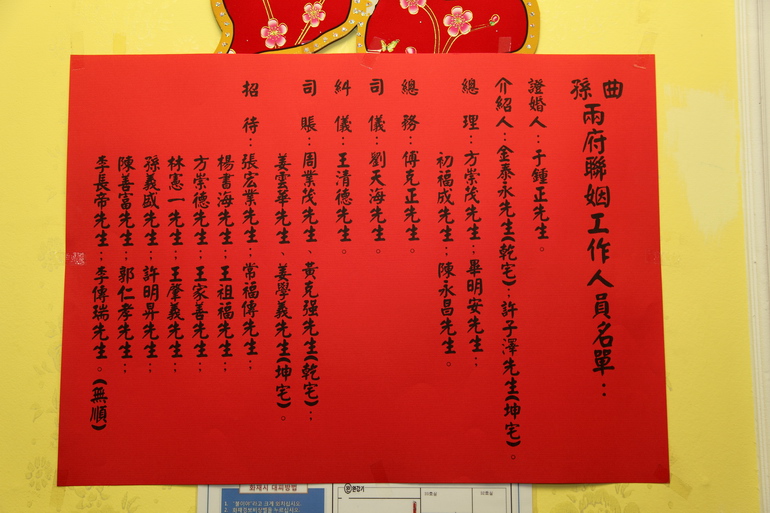 曲孫兩府聯姻工作人員名單：
證婚人：于鍾正先生。
介紹人：金泰永先生(乾宅)；許子澤先生(坤宅)。
總理：方崇茂先生；畢明安先生；
初福成先生；陳永昌先生。
總務：傅克正先生。
司儀：劉天海先生。
糾儀：王清德先生。
司賬：周業茂先生、黃克强先生(乾宅)；
姜雲華先生、姜學義先生(坤宅)。
招待：張宏業先生；常福傳先生；
楊書海先生；王祖福先生；
方崇德先生；王家善先生；
林憲一先生；王肇義先生；
孫義盛先生；許明昇先生；
陳善富先生；郭仁孝先生；
李長帝先生；李傳瑞先生。(無順)
화재시 대피방법
1. "불이야"하고 크게 외치십시오.
2. 화재경보비상벨을 누르십시오.